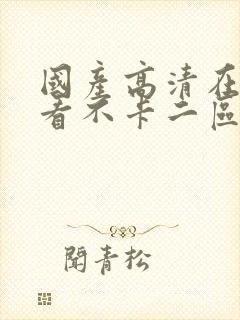 國產高清在
看不卡二區
聞青松